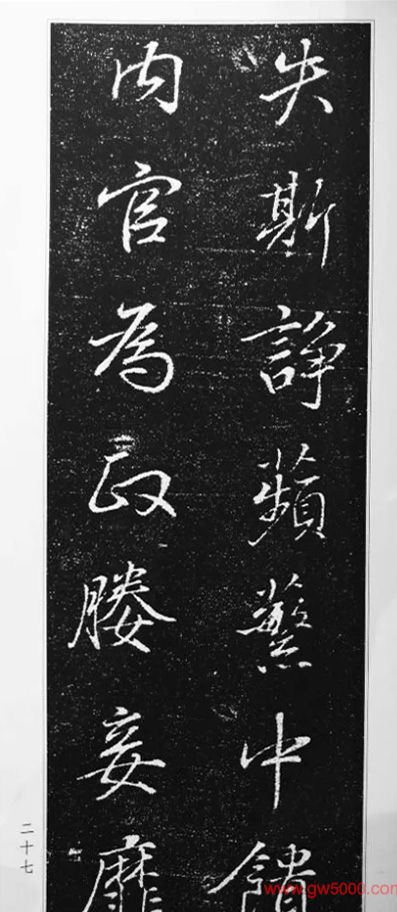 失斯諍蘋蘩中饋
内官為政媵妾靡
二十七
www.gw5000.com